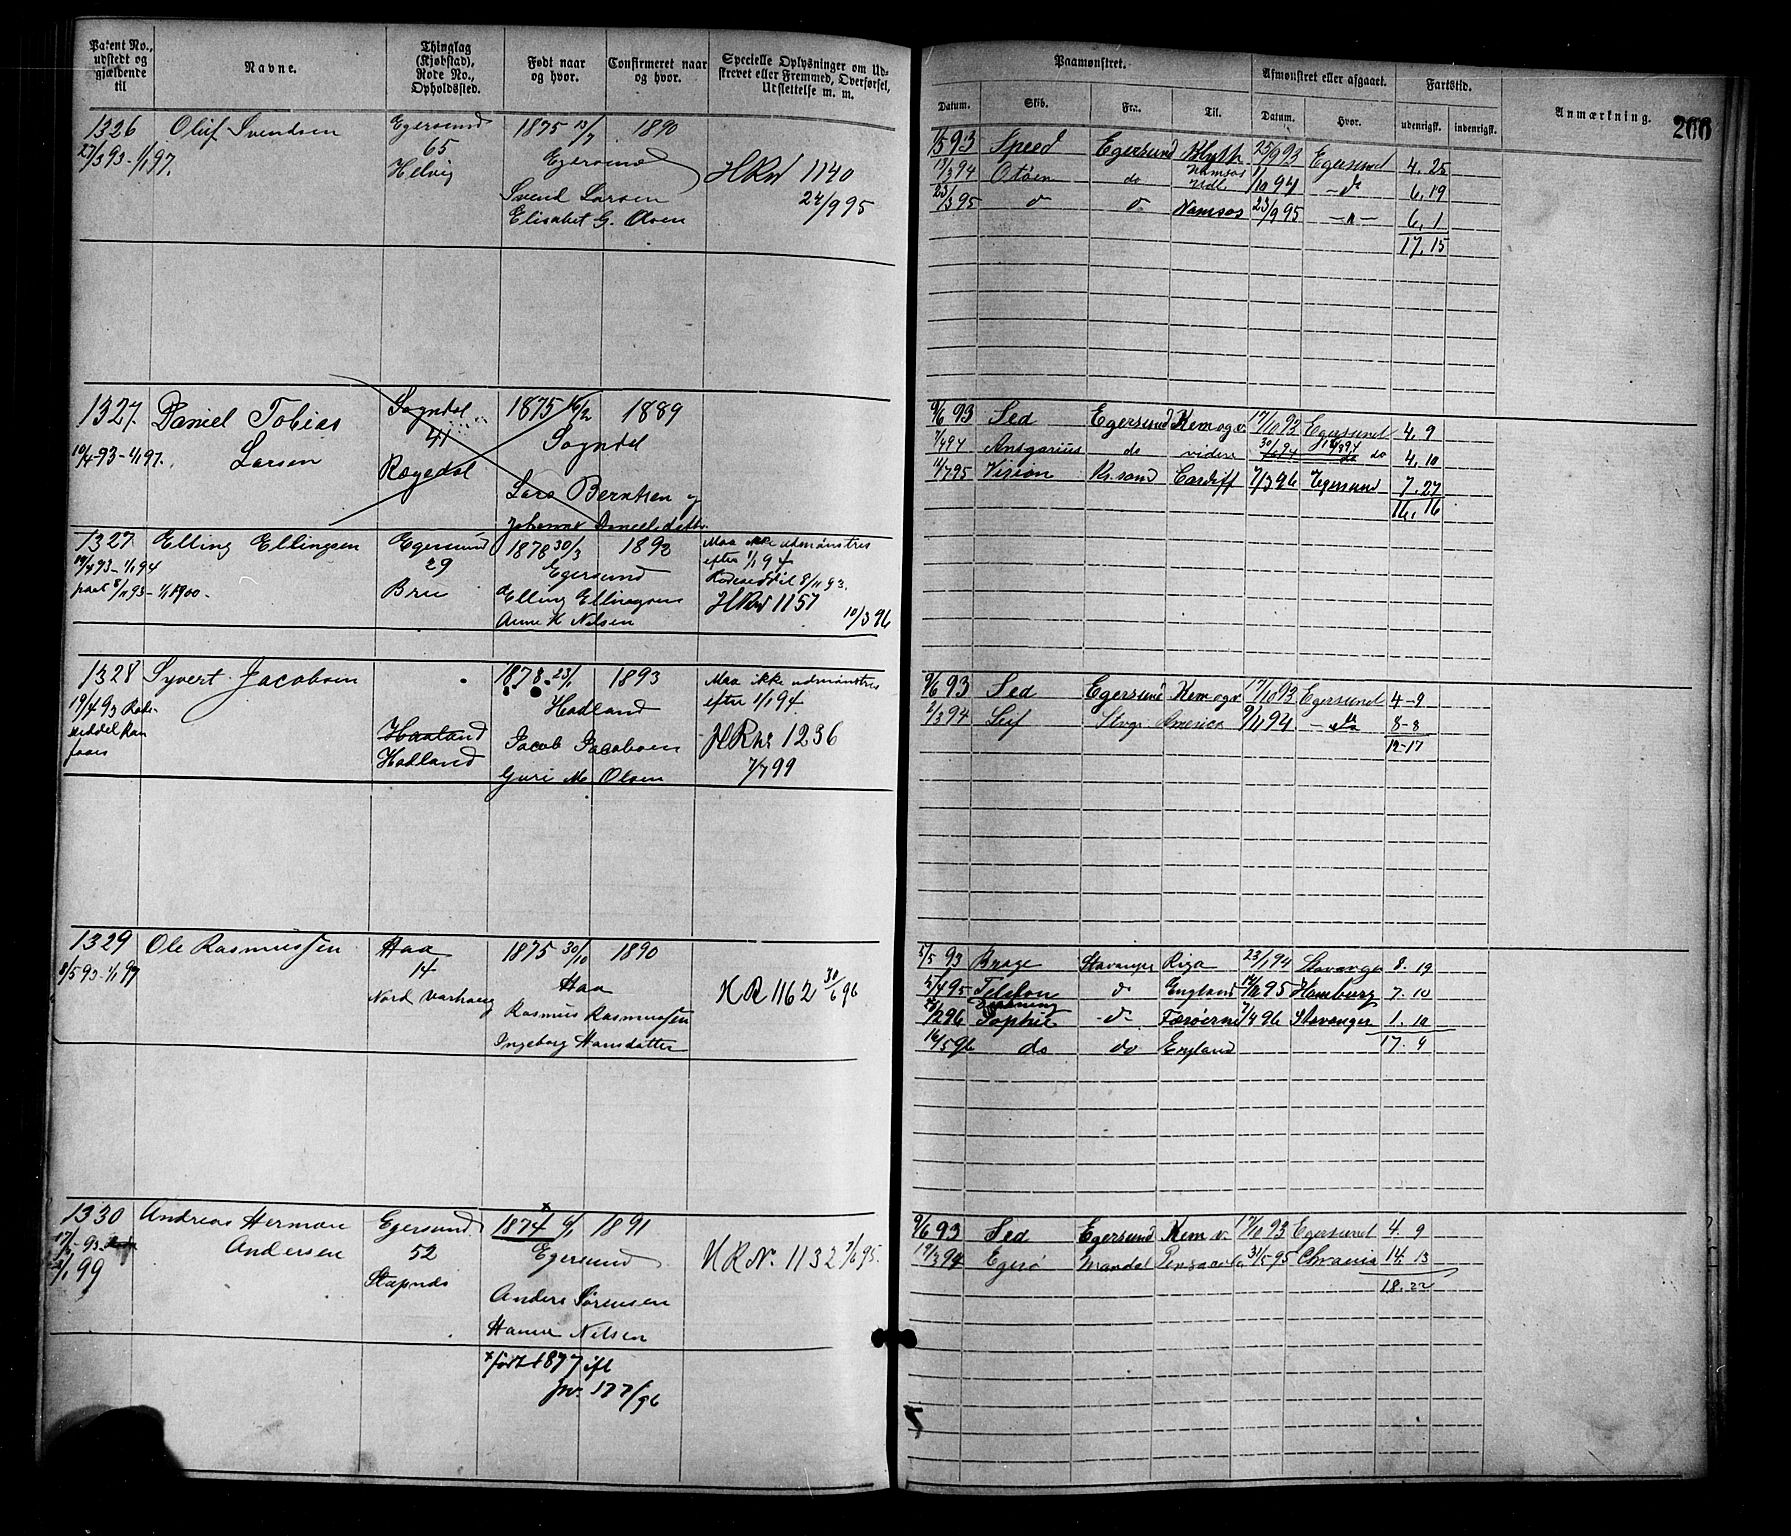 Patent No., udstedt og gjældende til
Navne.
Thinglag (Kjøbstad), Rode No., Opholdssted.
Født naar og hvor.
Confirmeret naar og hvor.
Specielle Oplysninger om Udskrevet eller Fremmed, Overførsel, Udslettelse m. m.
Paamønstret.
Afmønstret eller afgaaet.
Fartstid.
Anmærkning.
266
Datum.
Skib.
Fra.
Til.
Datum.
Hvor.
udenrigsk.
indenrigsk.
1326 Oluf Svendsen Egersund 1875 13/7 1890
27/3 93 - 1/1 97. 65 Egersund
Helvig HRN 1140
Svend Larsen 24/9 95
Elisabet G. Olsen
1/5 93 Speed Egersund Blyth 25/9 93 Egersund 4. 25
13/3 94 Otöen do Namsos Udl. 1/10 94 - do 6. 19
23/3 95 do do Namsos 23/9 95 - " - 6. 1
17. 15
1327. Daniel Tobias Sogndal 1875 16/2 1889
10/4 93 - 1/1 97. Larsen 41 Sogndal
Rægedal Lars Berntsen og
Johanne Danielsdatter
9/6 93 Sed Egersund Kem og v. 17/10 93 Egersund 4. 9
7/4 94 Ansgarius do videre do 4. 10
4/7 95 Vision Kr.sand Cardiff 7/3 96 Egersund 7. 27
16. 16
1327 Elling Ellingsen Egersund 1878 30/3 1892 Maa ikke udmønstres
19/4 93 - 1/1 94 29 Egersund efter 1/1 94
paat 8/11 93 - 1/1 1900. Bru Elling Ellingsen Rodeseddel 8/11 93.
Anne K Nilsen HRN 1157
10/3 96
1328 Syvert Jacobsen 1878 23/1 1893 Maa ikke udmønstres
19/4 93 Rodeseddel kan faaes Hadland efter 1/1 94.
Haaland Jacob Jacobsen HRNr 1236
Hadland Guri M. Olsen 7/7 99
9/6 93 Sed Egersund Kem og v 17/10 93 Egersund 4 - 9
2/3 94 Leif Stvgr America 9/11 94 - do 8 - 8
12 - 17
1329 Ole Rasmussen Haa 1875 30/10 1890
8/5 93 - 1/1 97 14 Haa
Nord Varhaug Rasmus Rasmussen HR 1162 30/6 96
Ingeborg Hansdatter
5/5 93 Brage Stavanger Riga 23/1 94 Stavanger 8. 19
5/4 95 do England 95 Hamburg 7. 10
96 Sophie - do - Færøerne 7/4 96 Stavanger 1. 10
16/5 96 do do England 17. 9
1330 Andreas Herman Egersund 1874 x 6/1 1891
Andersen 52 Egersund HRN. 1132 7/6 95.
99 Stapnes
Anders Sørensen
Hanne Nilsen
x født 1877 ifl
jrn. 177/96
9/6 93 Sed Egersund Kem v. 17/10 93 Egersund 4. 9
19/3 94 Egerø Mandal Pensacola 31/5 95 Chrania 14. 13
18. 22